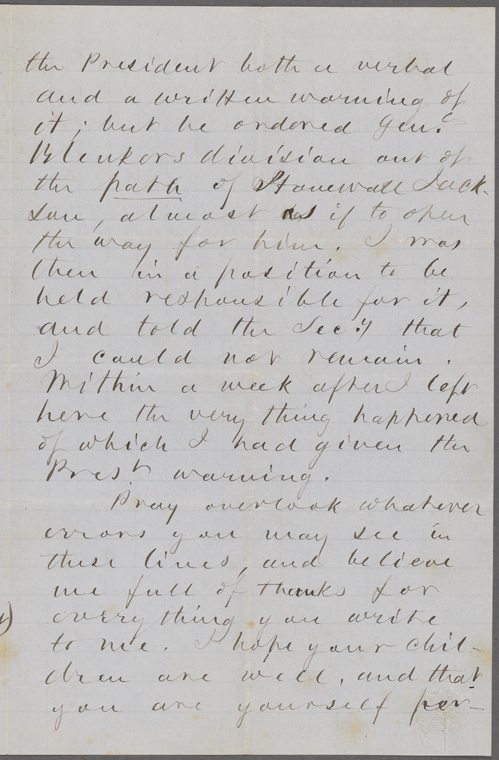 the President both a verbal
and a written warning of
it; but he ordored Gen.
Blenkers division out of
the path of Stonewall Jack-
son, almost as if to open
the way for him. I was
then in a position to be
held responsible for it,
and told the Sec:y that
I could not remain.
Within a week after I left
here the very thing happened
of which I had given the
Prest warning.
Pray overlook whatever
errors you may see in
these lines, and believe
me full of thanks for
everything you write
to me. I hope your chil-
dren are well, and that
you are yourself per-